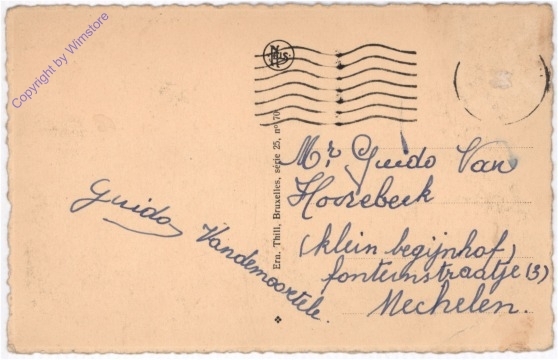 Copyright by Wimstore
NELS
Ern. Thill, Bruxelles, série 25, nº 70
Guido
Vandemoortele.
Mr Guido Van
Hoorebeek
(klein begijnhof)
fonteinstraatje (3)
Mechelen.